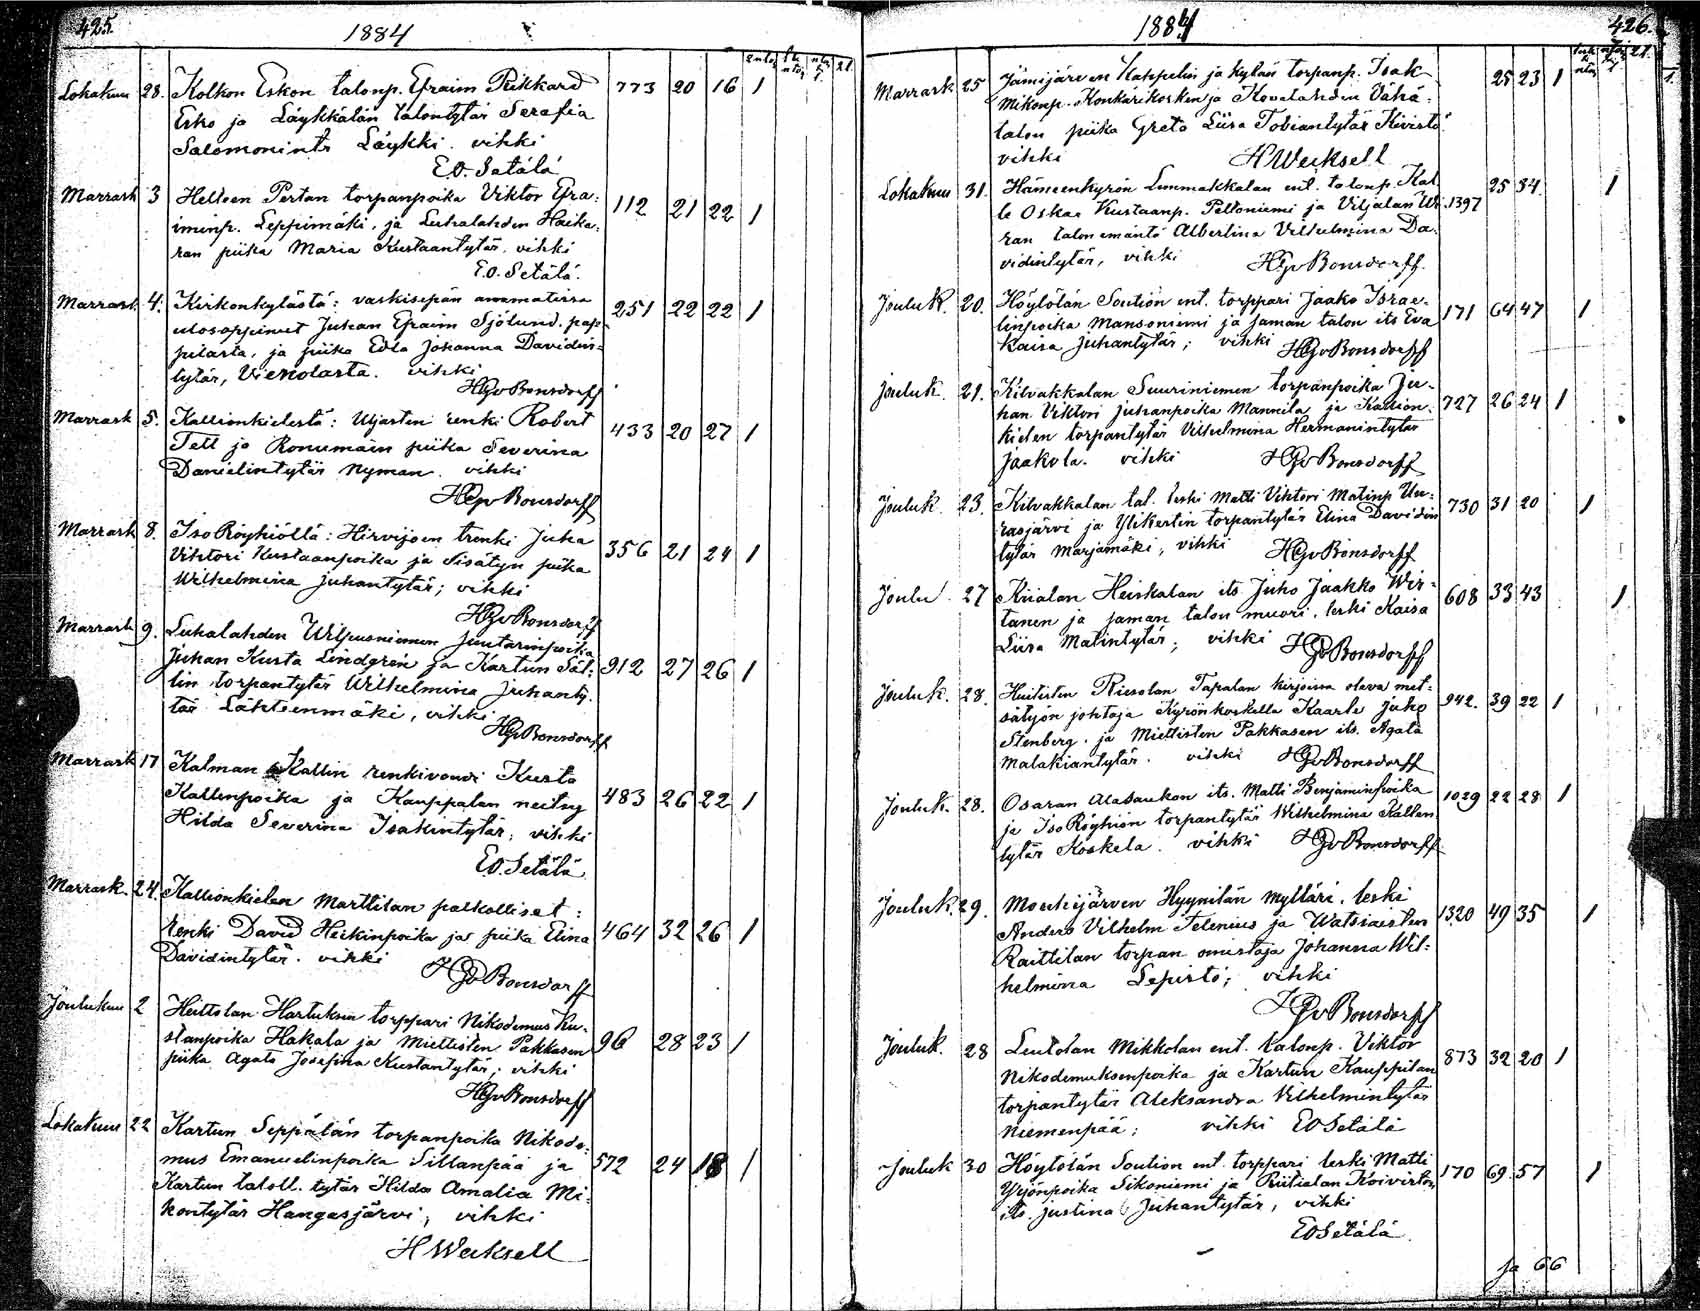 425.
1884
Lokakuu 28. Kolkon Eskon talonp. Efraim Rikkard 773 20 16 1
Esko ja Läykkälän talontytär Serafia
Salomonintr Läykki. vihki
E.O. Setälä
Marrask 3 Heltsen Pertan torpanpoika Viktor Efra-
iminp. Leppimäki, ja Luhalahden Hauka- 112 21 22 1
ran piika Maria Kustaantytär. vihki
E.O. Setälä.
Marrask. 4. Kirkonkylästä: vaskisepän ammatissa 251 22 22 1
ulosoppinut Juhan Efraim Sjölund. pap-
pilasta, ja piika Edla Johanna Davidin-
tytär, Vienolasta. vihki
HGvBonsdorff
Marrask 5. Kallionkielestä: Uljasten renki Robert 433 20 27 1
Tell ja Ronumäin piika Severina
Danielintytär Nyman. vihki
HGvBonsdorff
Marrask 8. Iso Röyhiöllä: Hirvijoen trenki Juha 356 21 24 1
Vihtori Kustaanpoika ja Sisätyn piika
Wilhelmina Juhantytär; vihki
HGvBonsdorff
Marrask 9. Luhalahden Wilpusniemen juutarinpoika
Juhan Kusta Lindgren ja Kartun Säl- 912 27 26 1
lin torpantytär Wilhelmina Juhanty-
tär Lähteenmäki, vihki
HGvBonsdorff
Marrask 17 Kalman Kallin renkivouvi Kusta
Kallenpoika ja Kauppalan neitsy 483 26 22 1
Hilda Severina Isakintytär; vihki
E.O. Setälä
Marrask. 24. Kallionkielen Marttilan palkolliset:
renki David Heikinpoika ja piika Elina 464 32 26 1
Davidintytär. vihki
HGvBonsdorff
Joulukuu 2 Heittolan Hartuksen torppari Nikodemus Ku-
staanpoika Hakala ja Miettisten Pakkasen 96 28 23 1
piika Agata Josefina Kustantytär; vihki
HGvBonsdorff
Lokakuu 22 Kartun Seppälän torpanpoika Nikode-
mus Emanuelinpoika Sillanpää ja 572 24 18 1
Kartun taloll. tytär Hilda Amalia Mi-
kontytär Hangasjärvi; vihki
H Wecksell
1884
426.
Marrask 25 Jämijärven Kappelin ja kylän torpanp. Isak 25 23 1
Mikonp. Konkärikosken ja Kovelahden Vähä-
talon piika Greta Liisa Tobiantytär Kivistö
vihki H Wecksell
Lokakuu 31. Hämeenkyrön Lemmakkalan ent. talonp. Kal 25 34. 1
le Oskar Kustaanp. Peltoniemi ja Viljalan Wi- 1397
ran talon emäntä Albertina Vilhelmina Da-
vidintytär, vihki HGvBonsdorff.
Jouluk. 20. Höytölän Soution ent. torppari Jaako Israe- 171 64 47 1
linpoika Mansoniemi ja saman talon its Eva
Kaisa Juhantytär; vihki HGvBonsdorff
Jouluk. 21. Kilvakkalan Suuriniemen torpanpoika Ju-
han Viktori Juhanpoika Mannila ja Kallion- 727 26 24 1
kielen torpantytär Vilhelmina Hermanintytär
Jaakola. vihki HGvBonsdorff
Jouluk. 23. Kilvakkalan tal. leski Matti Vihtori Matinp Uu- 730 31 20 1
rasjärvi ja Ylikertin torpantytär Elina Davidin
tytär Marjamäki; vihki HGvBonsdorff
Joulu 27 Kiialan Heiskalan its. Juho Jaakko Wir- 608 33 43 1
tanen ja saman talon muori. leski Kaisa
Liisa Matintytär; vihki HGvBonsdorff
Jouluk. 28. Huitisten Riesolan Tapalan kirjoissa oleva met- 942. 39 22 1
sätyön johtaja Kyrönkoskella Kaarle Juho
Stenberg. ja Miettisten Pakkasen its. Agata
Malakiantytär. vihki HGvBonsdorff
Jouluk. 28. Osaran Alasaukon its. Matti Benjaminpoika 1029 22 28 1
ja Iso Röyhiön torpantytär Wilhelmina Kallen
tytär Koskela. vihki HGvBonsdorff
Jouluk. 29. Mouhijärven Hyynilän myllari. leski
Anders Vilhelm Telenius ja Watsiaisten 1320 49 35 1
Raittilan torpan omistaja Johanna Wil-
helmina Lepistö; vihki
HGvBonsdorff
Jouluk. 28 Leutolan Mikkolan ent. talonp. Viktor 873 32 20 1
Nikodemuksenpoika ja Kartun Kauppilan
torpantytär Aleksandra Vilhelmintytär
Niemenpää; vihki EO Setälä
Jouluk 30 Höytölän Soution ent. torppari leski Matti 170 69 57 1
Yrjönpoika Sikoniemi ja Riitialan Koiviston
its. Justina Juhantytär, vihki
EO Setälä
ja 66